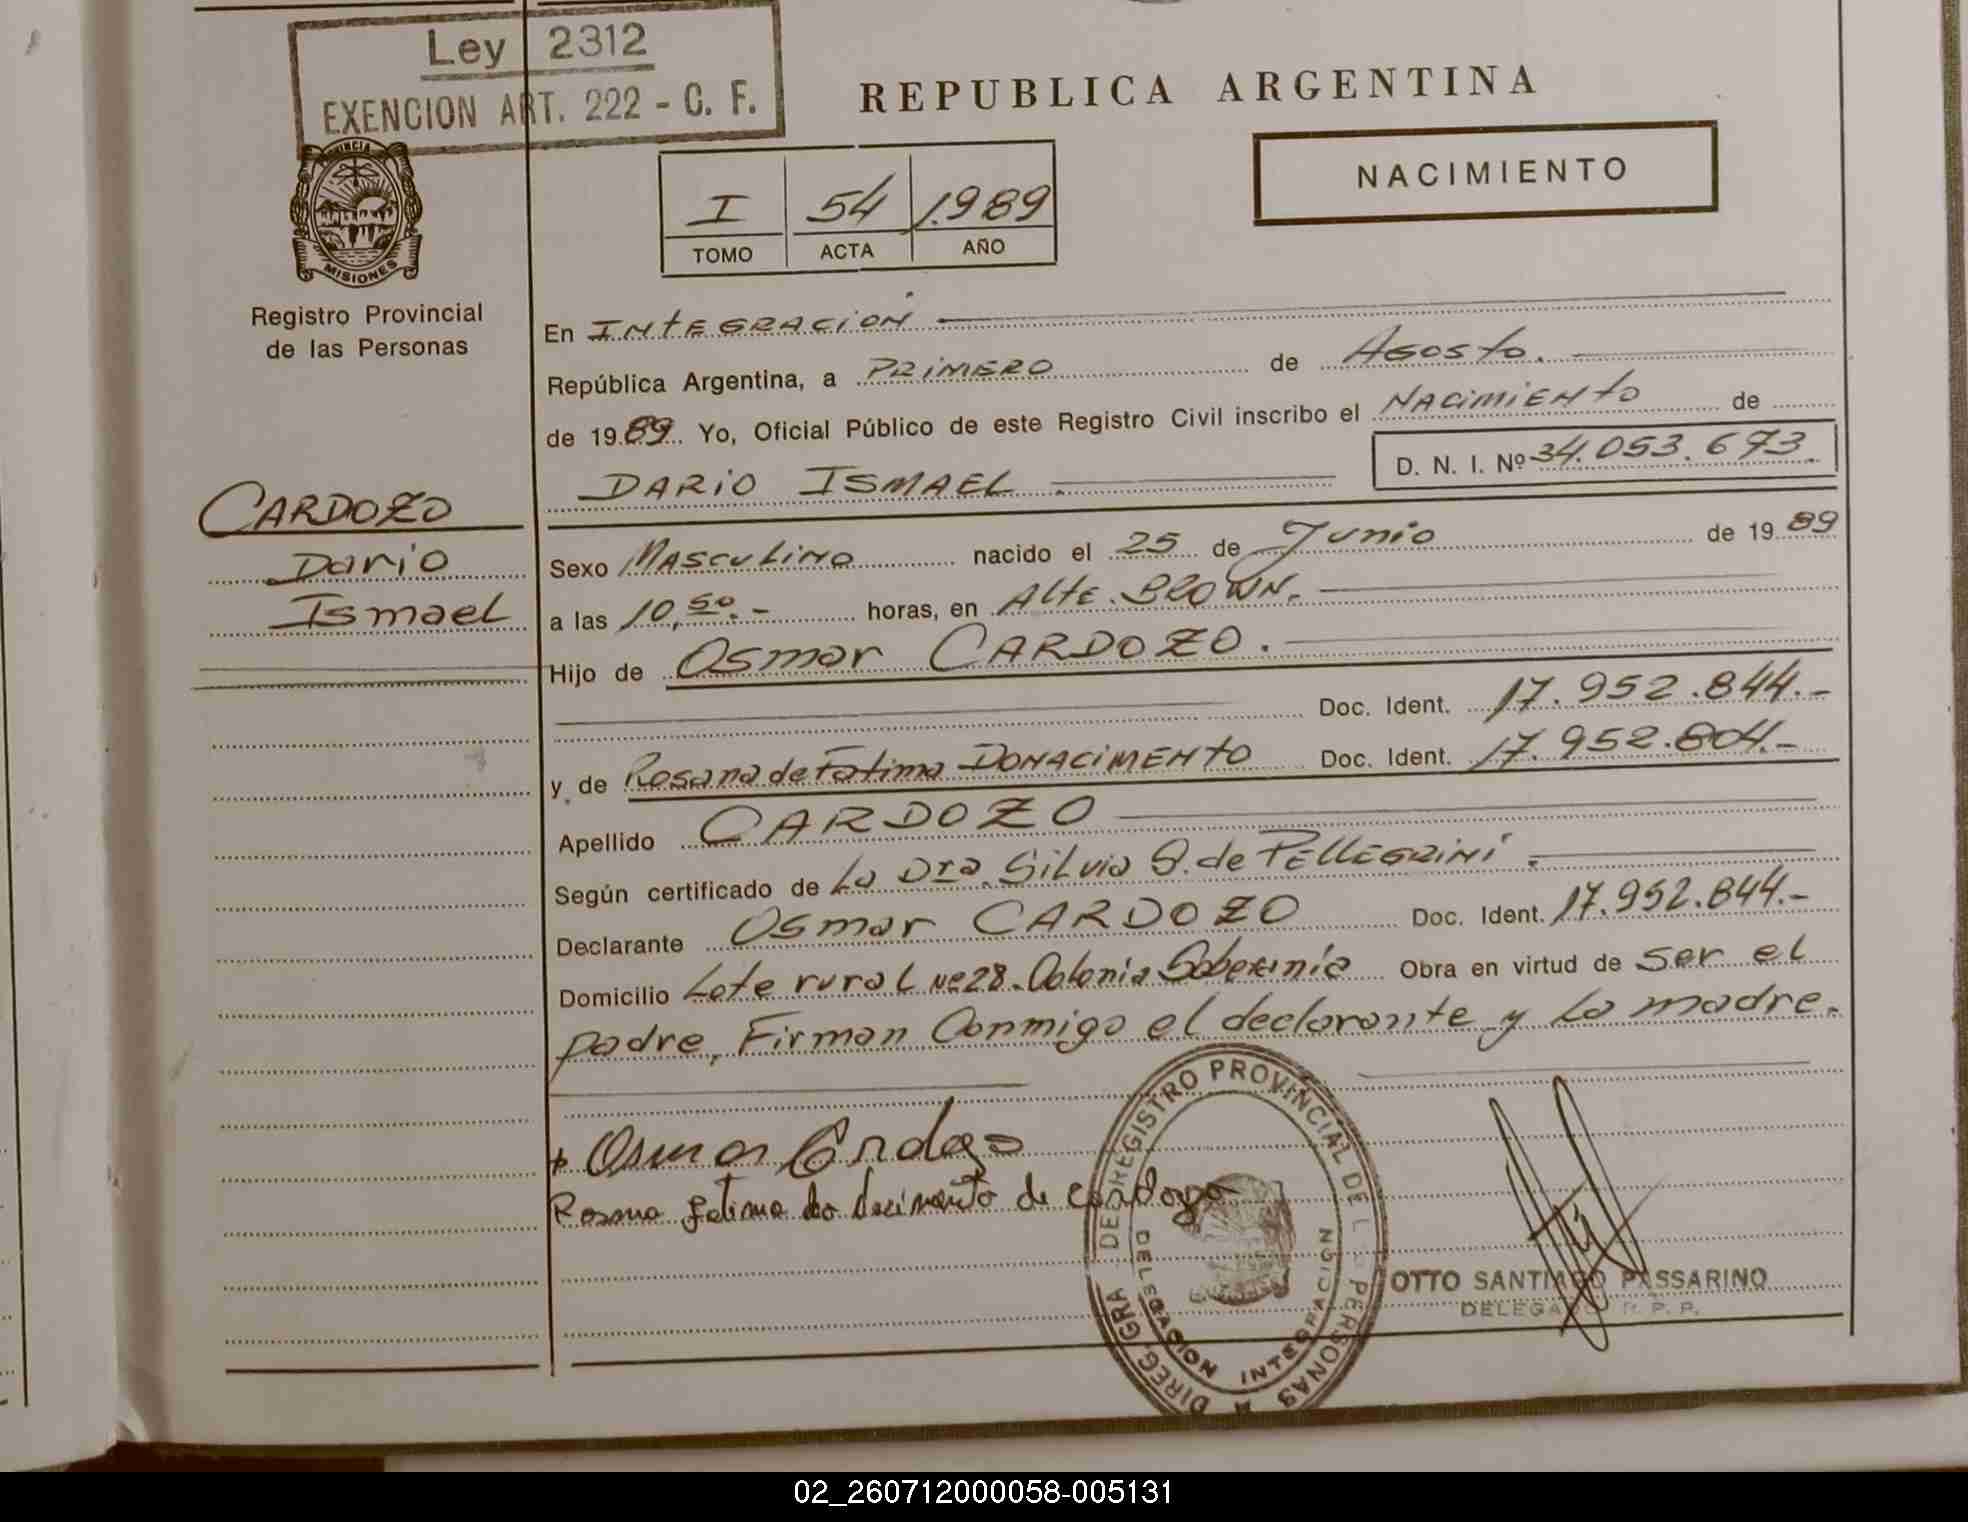 Ley 2312
EXENCION ART. 222 - C. F.
REPUBLICA ARGENTINA
NACIMIENTO
I 54 1989
TOMO ACTA AÑO
PROVINCIA
MISIONES
Registro Provincial
de las Personas
CARDOZO
Dario
Ismael
En INtEGRACIÓN
República Argentina, a PRIMERO de Agosto.
de 1989 Yo, Oficial Público de este Registro Civil inscribo el NACIMIENTO de
DARIO ISMAEL D. N. I. Nº 34.053.673.
Sexo MASCULINO nacido el 25 de Junio de 1989
a las 10,50.- horas, en Alte. BROWN.
Hijo de Osmar CARDOZO.
Doc. Ident. 17.952.844.-
y de Rosana de Fatima DONACIMENTO Doc. Ident. 17.952.804.-
Apellido CARDOZO
Según certificado de La Dra. Silvia G. de PELLEGRINI.
Declarante Osmar CARDOZO Doc. Ident. 17.952.844.-
Domicilio Lote rural Nº 28. Colonia Soberania Obra en virtud de ser el
padre, Firman Conmigo el declarante y La madre.
Osmar Cardozo
Rosana fatima do de cardozo
DIREC. GRAL. DE REGISTRO PROVINCIAL DE LAS PERSONAS
DELEGACION INTEGRACION
OTTO SANTIAGO PASSARINO
DELEGADO R. P. P.
02_260712000058-005131